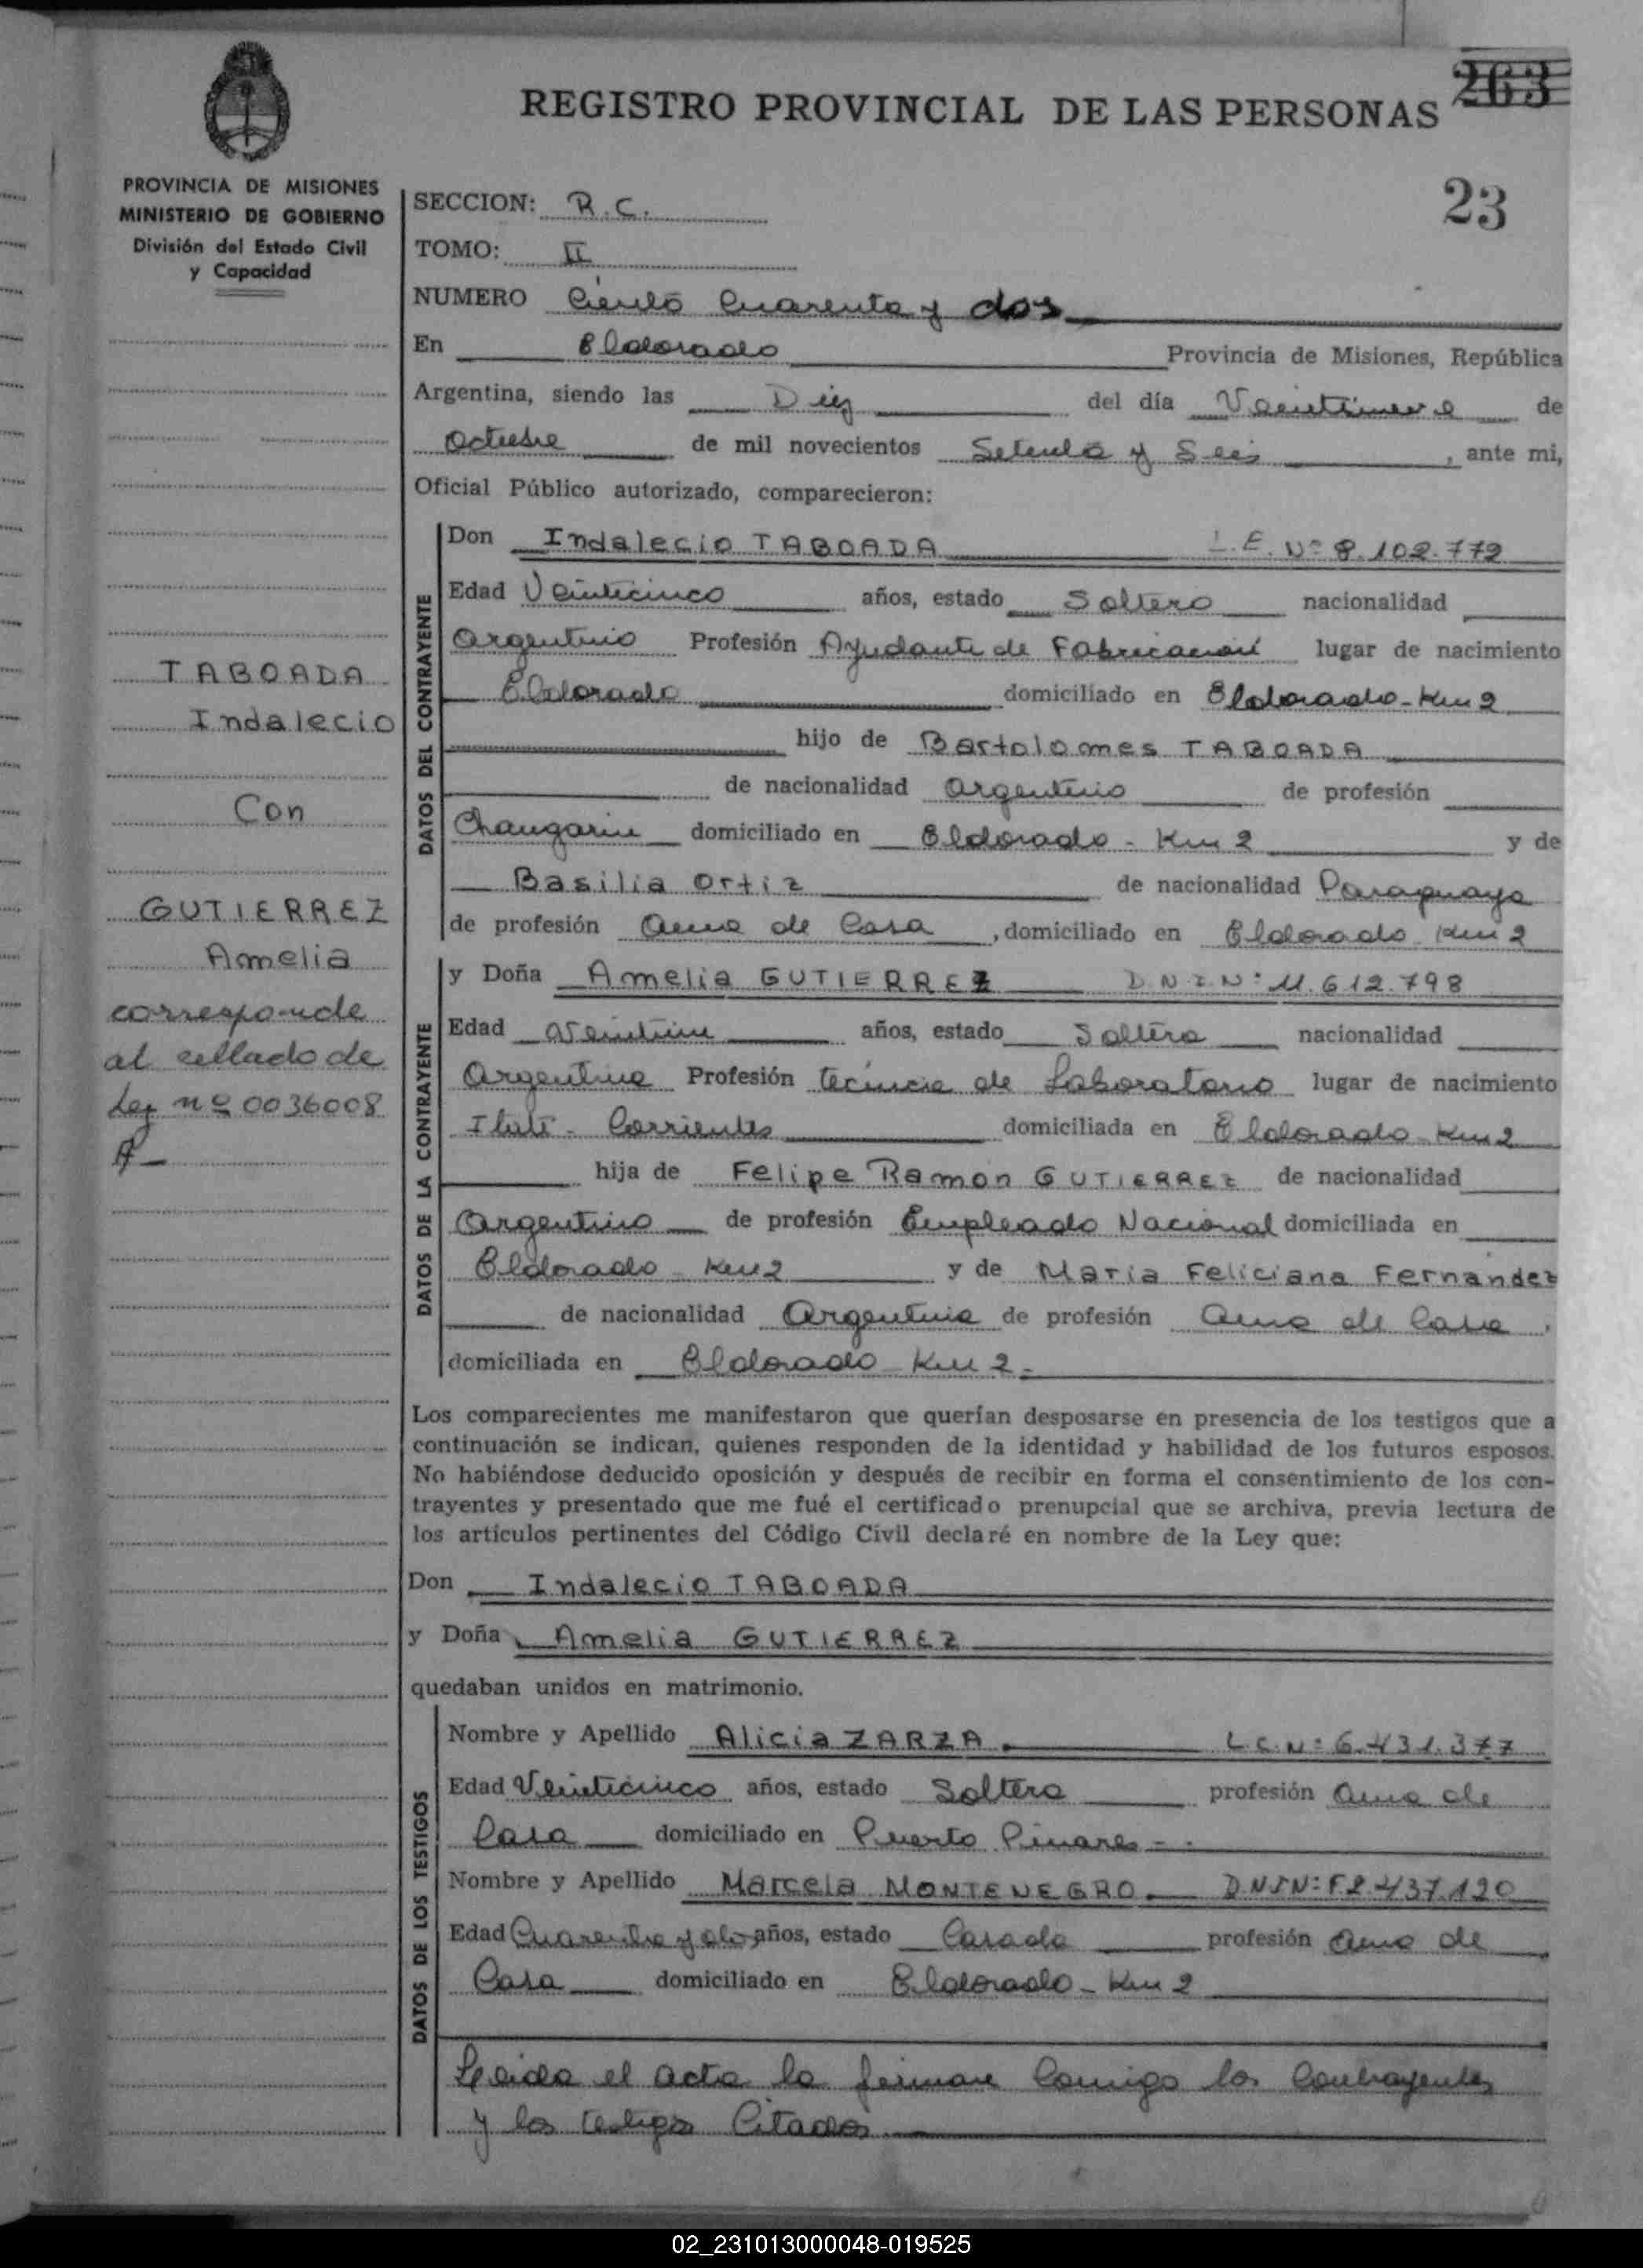 REGISTRO PROVINCIAL DE LAS PERSONAS
263
23
PROVINCIA DE MISIONES
MINISTERIO DE GOBIERNO
División del Estado Civil
y Capacidad
SECCION: R.C.
TOMO: II
NUMERO Ciento Cuarenta y dos
En Eldorado Provincia de Misiones, República
Argentina, siendo las Diez del día Veintinueve de
Octubre de mil novecientos Setenta y Seis, ante mi,
Oficial Público autorizado, comparecieron:
TABOADA
Indalecio
Con
GUTIERREZ
Amelia
corresponde
al sellado de
Ley nº 0036008
DATOS DEL CONTRAYENTE
Don Indalecio TABOADA L.E. Nº 8.102.772
Edad Veinticinco años, estado Soltero nacionalidad
Argentino Profesión Ayudante de Fabricación lugar de nacimiento
Eldorado domiciliado en Eldorado - Km 2
hijo de Bartolomes TABOADA
de nacionalidad Argentino de profesión
Changarin domiciliado en Eldorado - Km 2 y de
Basilia Ortiz de nacionalidad Paraguaya
de profesión Ama de Casa, domiciliado en Eldorado Km 2
DATOS DE LA CONTRAYENTE
y Doña Amelia GUTIERREZ D.N.I.Nº 11.612.798
Edad años, estado Soltera nacionalidad
Argentina Profesión tecnica de Laboratorio lugar de nacimiento
Itatí - Corrientes domiciliada en Eldorado Km 2
hija de Felipe Ramon GUTIERREZ de nacionalidad
Argentino de profesión Empleado Nacional domiciliada en
Eldorado - Km 2 y de Maria Feliciana Fernandez
de nacionalidad Argentina de profesión Ama de Casa,
domiciliada en Eldorado Km 2.
Los comparecientes me manifestaron que querían desposarse en presencia de los testigos que a
continuación se indican, quienes responden de la identidad y habilidad de los futuros esposos.
No habiéndose deducido oposición y después de recibir en forma el consentimiento de los con-
trayentes y presentado que me fué el certificado prenupcial que se archiva, previa lectura de
los artículos pertinentes del Código Civil declaré en nombre de la Ley que:
Don Indalecio TABOADA
y Doña Amelia GUTIERREZ
quedaban unidos en matrimonio.
DATOS DE LOS TESTIGOS
Nombre y Apellido Alicia ZARZA. L.C.Nº 6.431.377
Edad Veinticinco años, estado Soltera profesión Ama de
Casa domiciliado en Puerto Pinares -.
Nombre y Apellido Marcela MONTENEGRO. D.N.I.Nº F2.437.120
Edad Cuarenta y dos años, estado Casada profesión Ama de
Casa domiciliado en Eldorado - Km 2
Leida el acta la firman Comigo los Contrayentes
y los testigos Citados
02_231013000048-019525